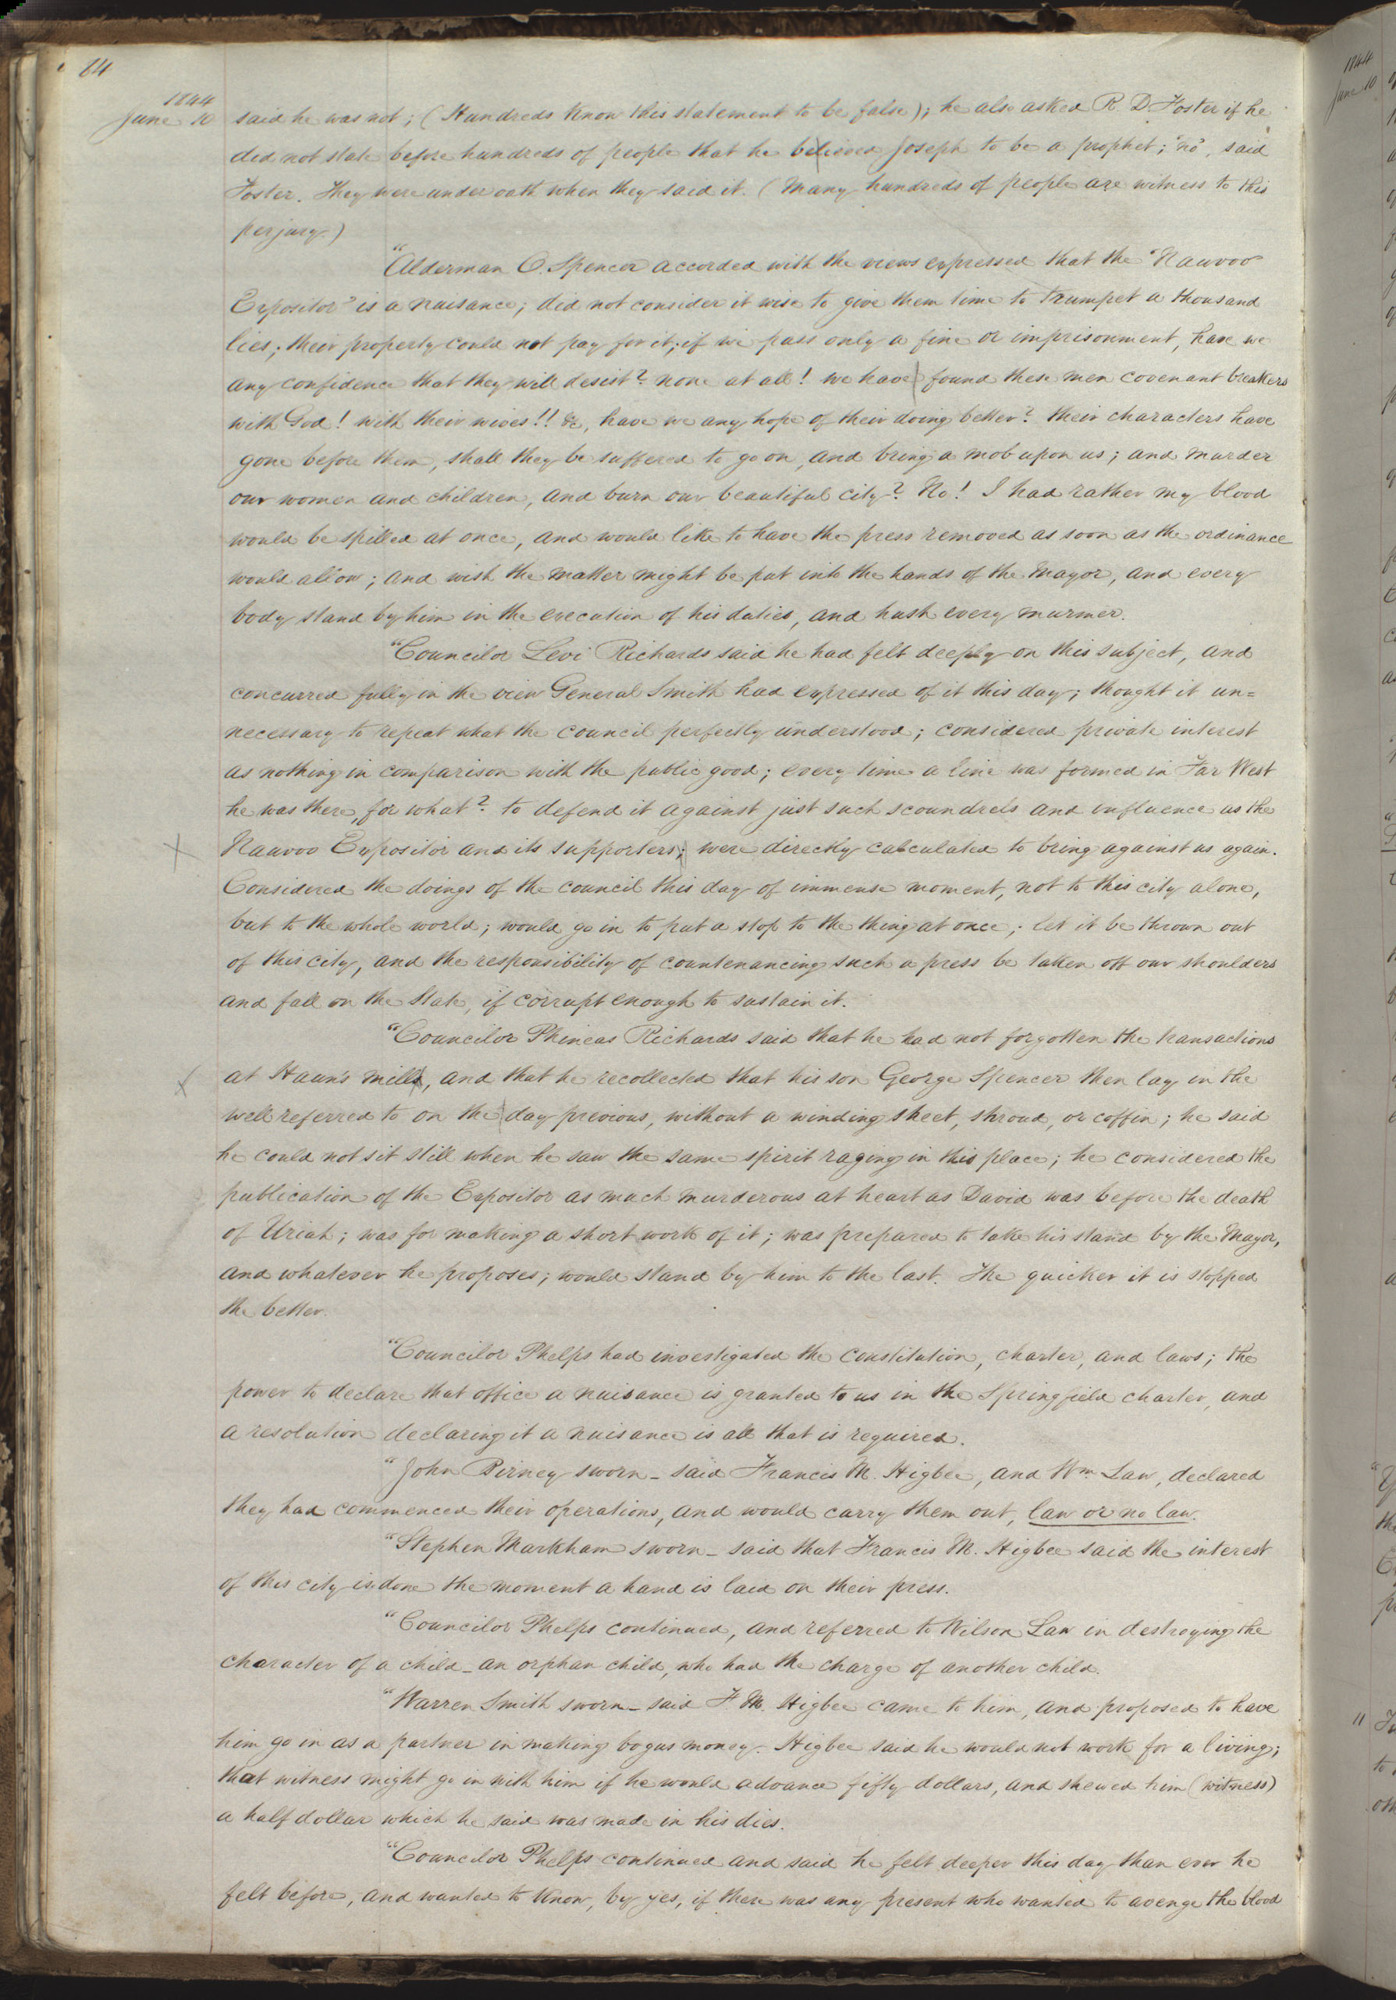 84
1844
June 10
said he was not; (Hundreds know this statement to be false); he also asked R. D. Foster if he
did not state before hundreds of people that he believed Joseph to be a prophet; "no", said
Foster. They were under oath when they said it. (Many hundreds of people are witness to this
perjury.)
"Alderman O. Spencer accorded with the views expressed that the "Nauvoo
Expositor" is a nuisance; did not consider it wise to give them time to trumpet a thousand
lies; their property could not pay for it; if we pass only a fine or imprisonment, have we
any confidence that they will desist? none at all! we have found these men covenant breakers
with God! with their wives!! &c, have we any hope of their doing better? their characters have
gone before them, shall they be suffered to go on, and bring a mob upon us; and murder
our women and children, and burn our beautiful city? No! I had rather my blood
would be spilled at once, and would like to have the press removed as soon as the ordinance
would allow; and wish the matter might be put into the hands of the Mayor, and every
body stand by him in the execution of his duties, and hush every murmer.
"Councilor Levi Richards said he had felt deeply on this subject, and
concurred fully in the view General Smith had expressed of it this day; thought it un=
necessary to repeat what the council perfectly understood; considered private interest
as nothing in comparison with the public good; every time a line was formed in Far West
he was there, for what? to defend it against just such scoundrels and influence as the
Nauvoo Expositor and its supporters; were directly calculated to bring against us again.
Considered the doings of the council this day of immense moment, not to this city alone,
but to the whole world; would go in to put a stop to the thing at once; let it be thrown out
of this city, and the responsibility of countenancing such a press be taken off our shoulders
and fall on the State, if corrupt enough to sustain it.
"Councilor Phineas Richards said that he had not forgotten the transactions
at Haun's mill, and that he recollected that his son George Spencer then lay in the
well referred to on the day previous, without a winding sheet, shroud, or coffin; he said
he could not sit still when he saw the same spirit raging in this place; he considered the
publication of the Expositor as much murderous at heart as David was before the death
of Uriah; was for making a short work of it; was prepared to take his stand by the Mayor,
and whatever he proposes; would stand by him to the last. The quicker it is stopped
the better.
"Councilor Phelps had investigated the constitution, charter, and laws; the
power to declare that office a nuisance is granted to us in the Springfield charter, and
a resolution declaring it a nuisance is all that is required.
"John Birney sworn_ said Francis M. Higbee, and Wm Law, declared
they had commenced their operations, and would carry them out, law or no law.
"Stephen Markham sworn_ said that Francis M. Higbee said the interest
of this city is done the moment a hand is laid on their press.
"Councilor Phelps continued, and referred to Wilson Law in destroying the
character of a child_ an orphan child, who had the charge of another child.
"Warren Smith sworn_ said F. M. Higbee came to him, and proposed to have
him go in as a partner in making bogus money. Higbee said he would not work for a living;
that witness might go in with him if he would advance fifty dollars, and shewed him (witness)
a half dollar which he said was made in his dies.
"Councilor Phelps continued and said he felt deeper this day than ever he
felt before, and wanted to know, by yes, if there was any present who wanted to avenge the blood
1844
June 10
11